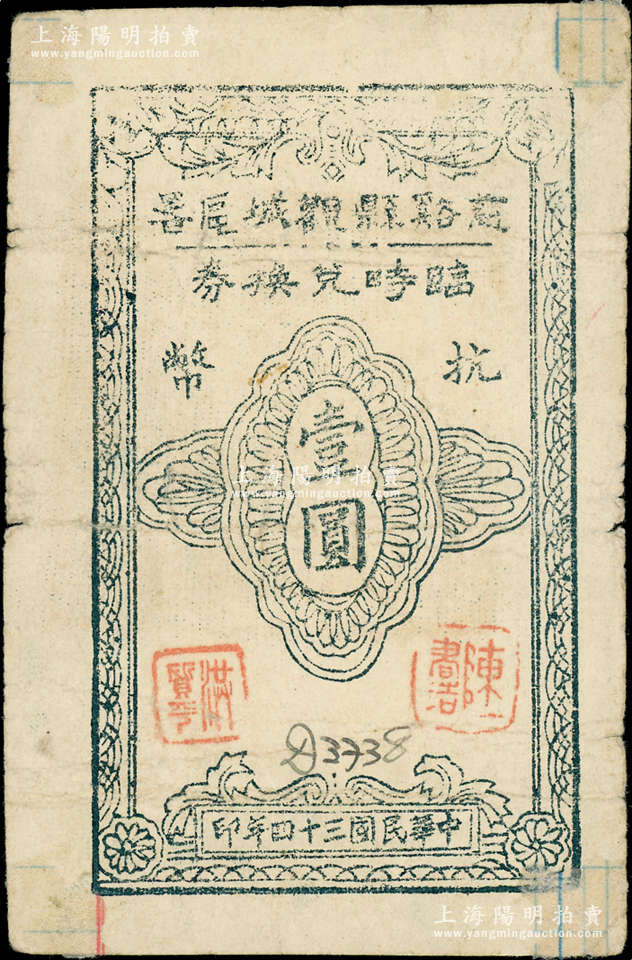 上海陽明拍賣
www.yangmingauction.com
慈谿縣觀城區署
臨時兌換券
抗幣
壹圓
上海陽明拍賣
www.yangmingauction.com
陳
洪
3738
中華民國三十四年印
上海陽明拍賣
www.yangmingauction.com